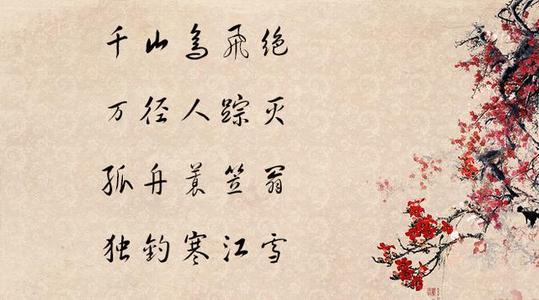 千山鸟飞绝
万径人踪灭
孤舟蓑笠翁
独钓寒江雪